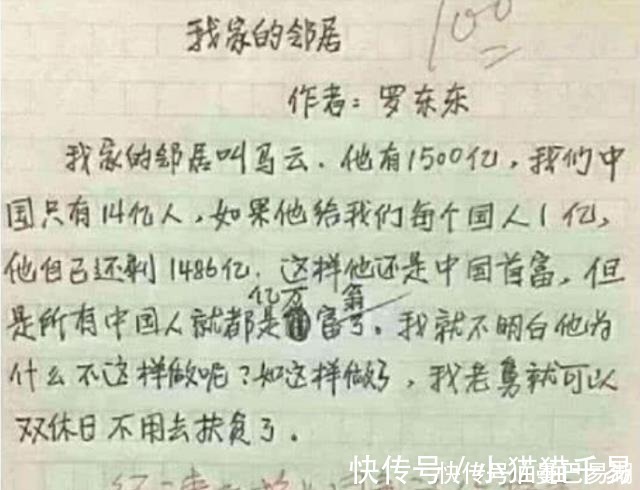 我家的邻居
100
作者：罗东东
我家的邻居叫马云．他有1500亿，我们中
国只有14亿人，如果他给我们每个国人1亿，
他自己还剩1486亿．这样他还是中国首富，但
亿万 翁
是所有中国人就都是富了。我就不明白他为
什么不这样做呢？如这样做好，我老舅就可以
双休日不用去扶贫了。
快传号／
快传号／